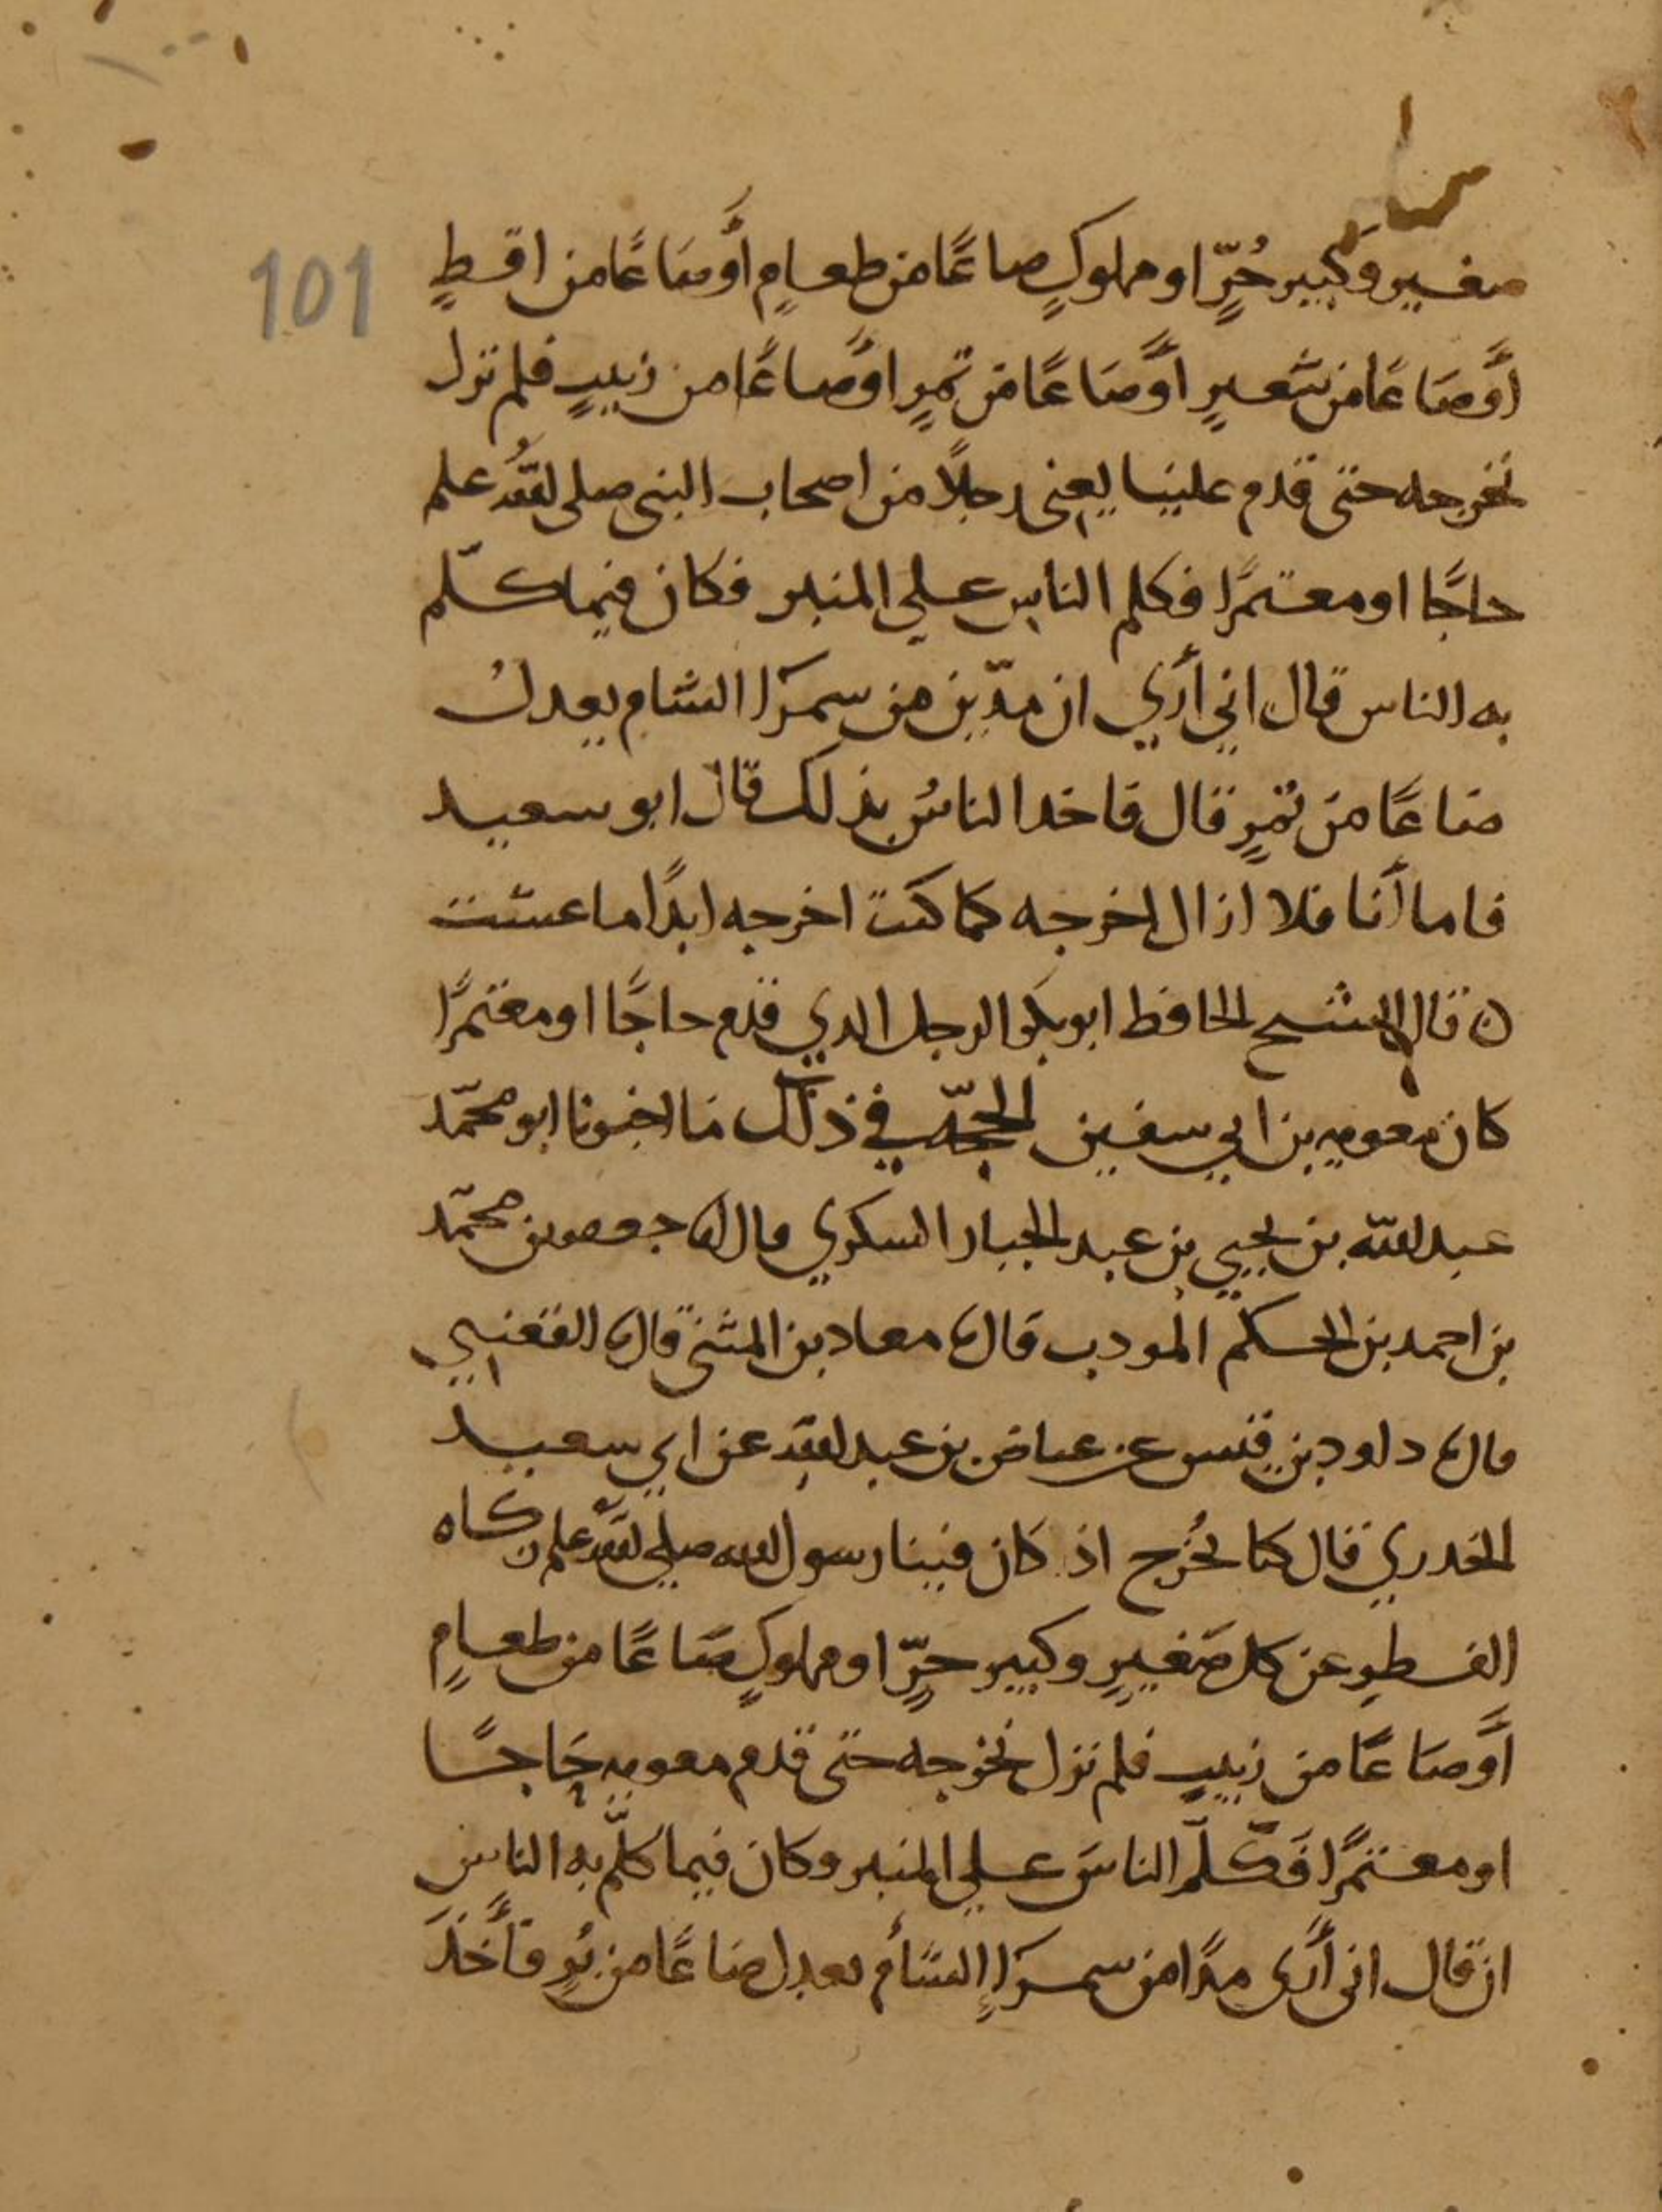 101
صغير وكبير حُرٍّ او مملوكٍ صاعًا من طعامٍ أَو صَاعًا من اقطٍ
أَو صَاعًا من شعيرٍ أَو صَاعًا من تمرٍ او صاعًا من زبيبٍ فلم نزل
نخرجه حتى قدم علينا يعنى رجلاً من اصحاب النبى صلى الله علم
حاجًّا او معتمرًا فكلم الناس على المنبر فكان فيما كلّم
به الناس قال اني أري ان مدّين من سمرَا الشام يعدلُ
صَاعًا من تمرٍ قال فاخد الناسُ بذلك قال ابو سعيد
فاما أنا فلا ازال اخرجه كما كنت اخرجه ابدًا ما عشت
قال الشيخ الحافظ ابو بكر الرجل الدي قدم حاجًّا او معتمرًا
كان معويه بن ابي سفين الحجّه في ذلك ما اخبرنا ابو محمّد
عبد الله بن يحيي بن عبد الجبار السكري قال جعفر بن محمّد
بن احمد بن الحكم المودب قال معاد بن المثنى قال القعنبي
قال داود بن قيس عن عياض بن عبد الله عن ابي سعيد
الخدري قال كنا نُخرج اذ كان فينا رسول الله صلي الله علم زكاه
الفطر عن كل صَغيرٍ وكبير حرٍّ او مملوكٍ صَاعًا من طعامٍ
أَو صاعًا من زبيب فلم نزل نخرجه حتى قدم معويه حَاجًّا
او معتمرًا فكلّم الناسَ على المنبر وكان فيما كلّم به الناس
ان قال انى أرى مدًا من سمرَاءِ الشأم يعدل صَاعًا من بُرٍ فأَخَذَ